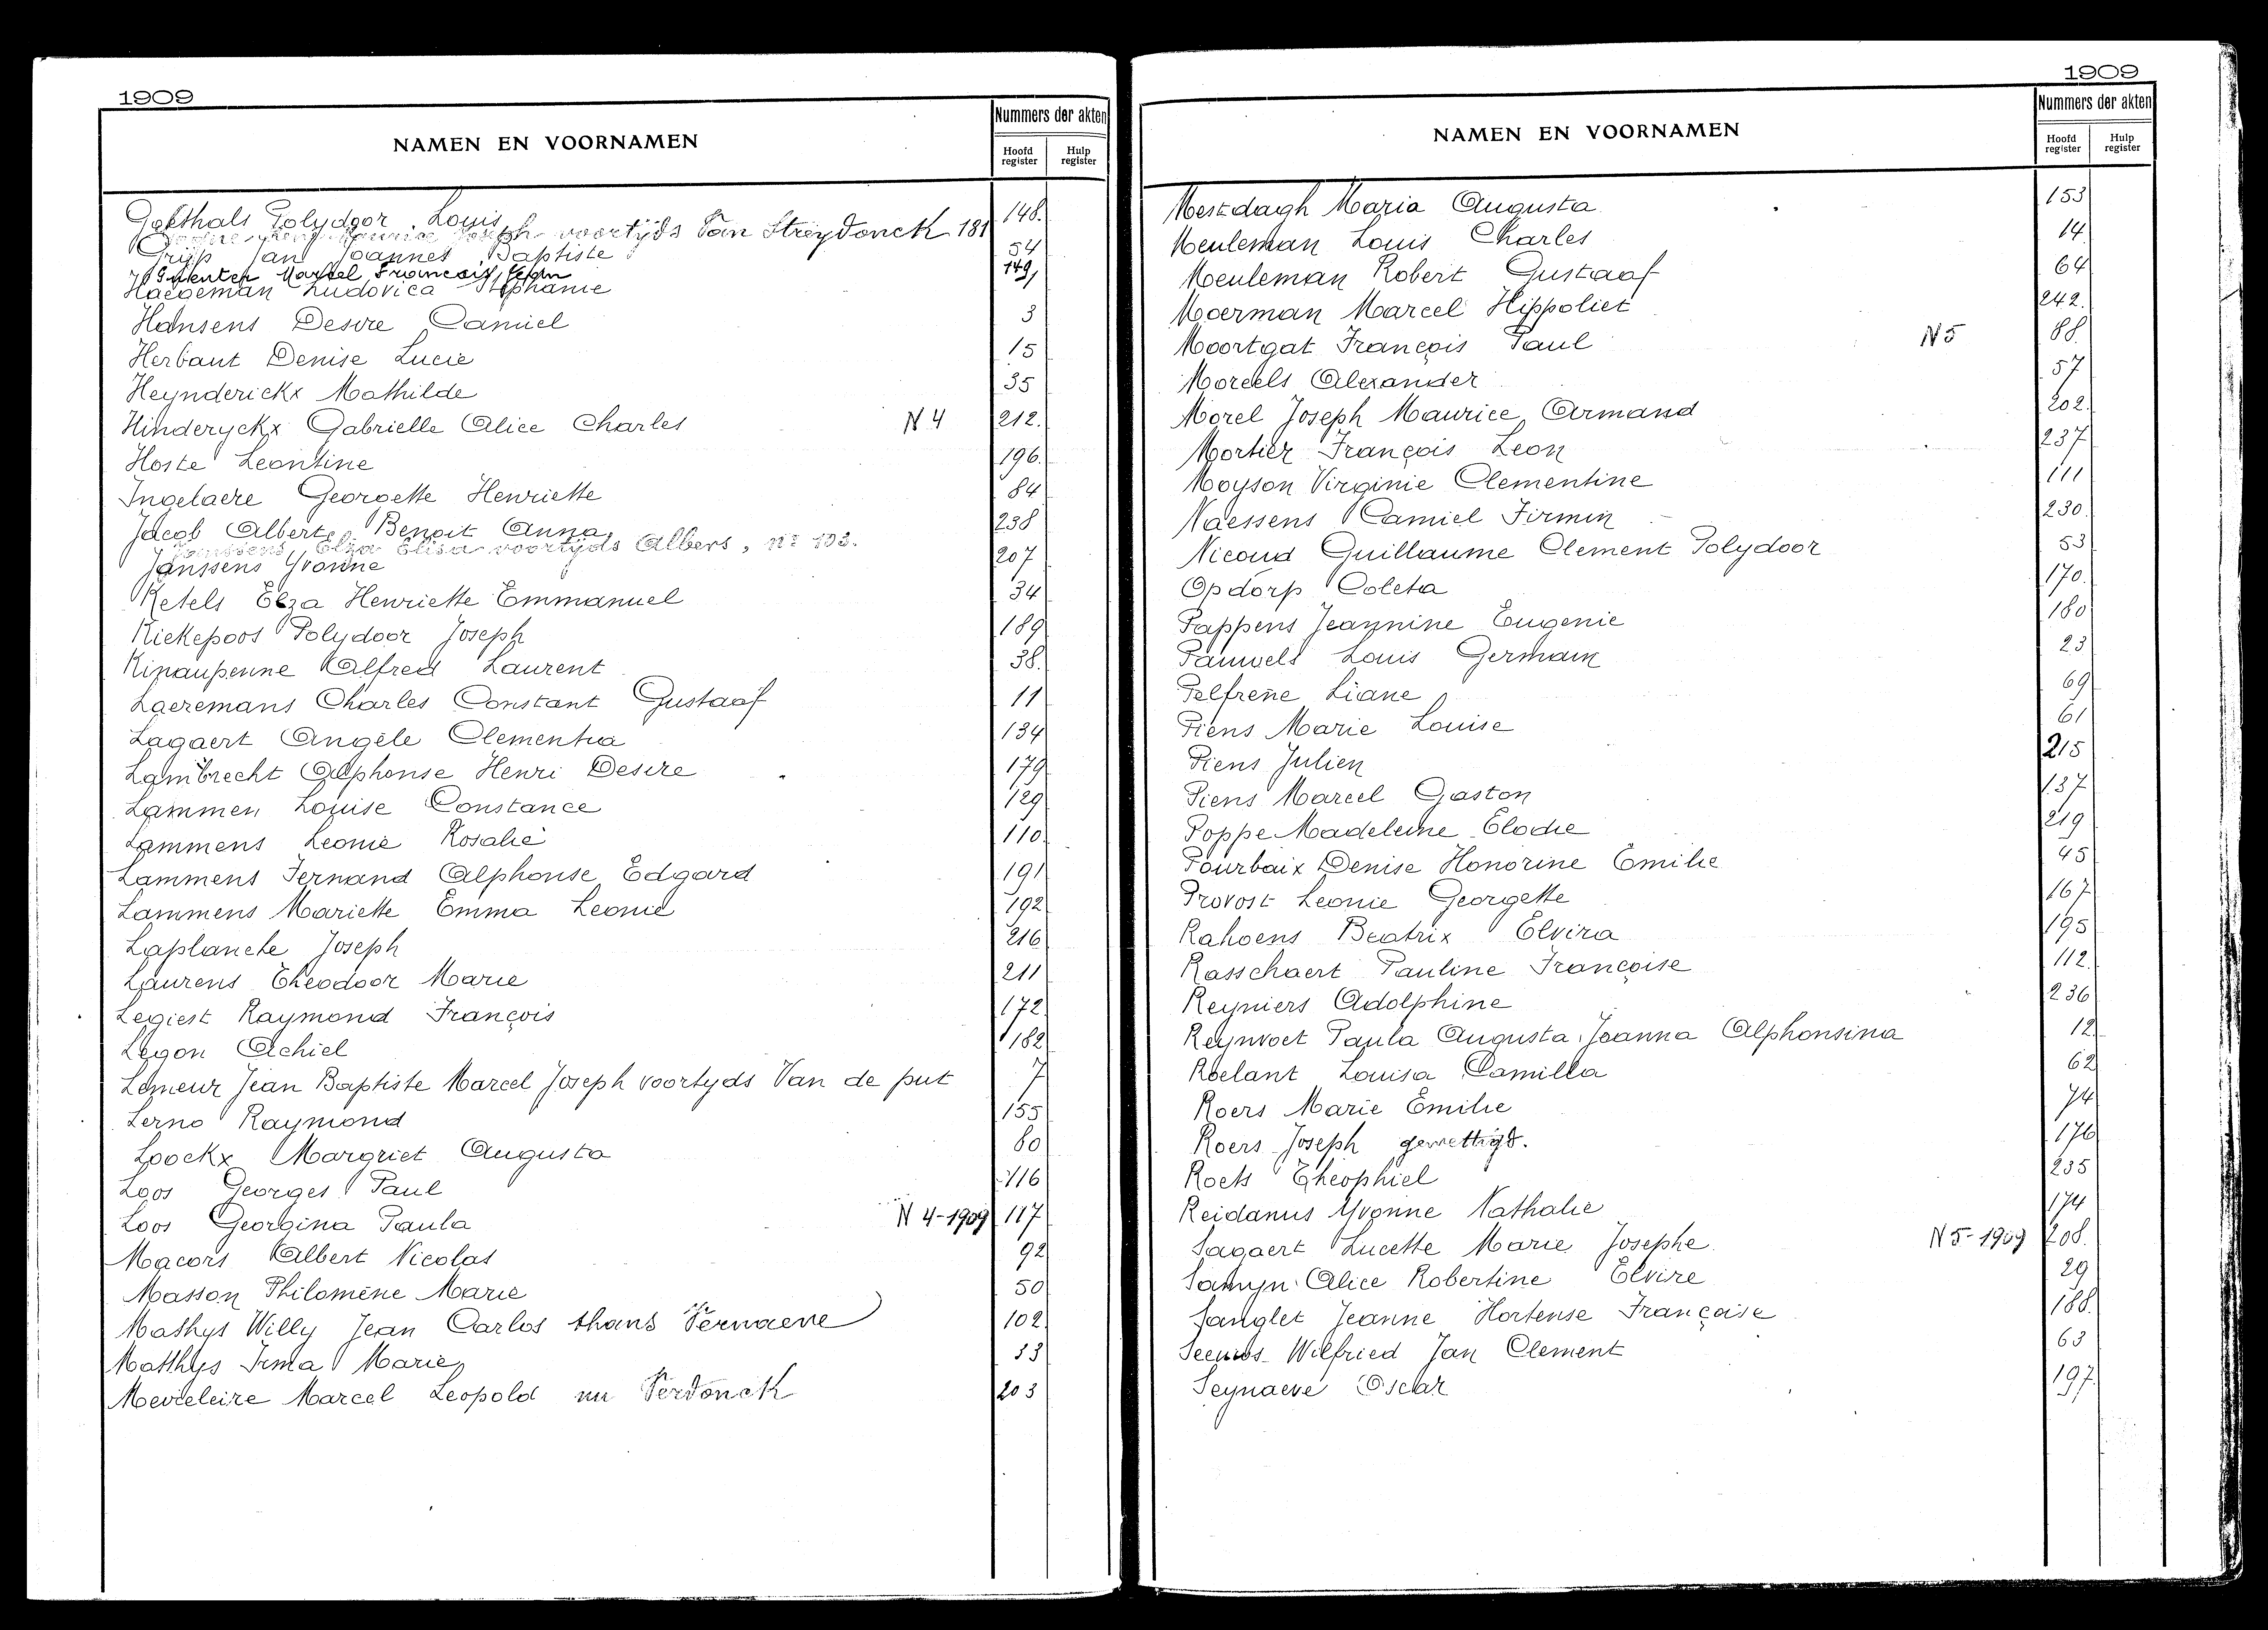 1909
NAMEN EN VOORNAMEN
Nummers der akten
Hoofd register
Hulp register
Goethals Polydoor Louis 148.
Maurice Joseph voortijds Van Streydonck 181
Grijp Jan Joannes Baptiste 54
Marcel François Leon 149
Haegeman Ludovica Stephanie
Hansens Desire Camiel 3
Herbaut Denise Lucie 15
Heynderickx Mathilde 35
Hinderyckx Gabrielle Alice Charles N 4 212.
Hoste Leontine 196.
Ingelaere Georgette Henriette 84
Jacob Albert Benoit Anna 238
Janssens Elza Elisa voortijds Albers, nr 103.
Janssens Yvonne 207
Ketels Elza Henriette Emmanuel 34
Kiekepoos Polydoor Joseph 189
Kinaupenne Alfred Laurent 38.
Laeremans Charles Constant Gustaaf 11
Lagaert Angèle Clementia 134
Lambrecht Alphonse Henri Desire 179
Lammen Louise Constance 129
Lammens Leonie Rosalie 110.
Lammens Fernand Alphonse Edgard 191
Lammens Mariette Emma Leonie 192
Laplanche Joseph 216
Laurens Theodoor Marie 211
Legiest Raymond François 172
Legon Achiel 182
Lemeur Jean Baptiste Marcel Joseph voortyds Van de put 7
Lerno Raymond 155
Loockx Margriet Augusta 80
Loos Georges Paul 116
Loos Georgina Paula N 4-1909 117
Macors Albert Nicolas 92
Masson Philomène Marie 50
Mathys Willy Jean Carlos thans Vernaeve 102
Matthys Irma Marie 33
Mevieleire Marcel Leopold nu Verdonck 203
1909
NAMEN EN VOORNAMEN
Nummers der akten
Hoofd register
Hulp register
Mestdagh Maria Augusta 153
Meuleman Louis Charles 14
Meuleman Robert Gustaaf 64
Moerman Marcel Hippoliet 242.
Moortgat François Paul N 5 88.
Moreels Alexander 57
Morel Joseph Maurice Armand 202.
Mortier François Leon 237
Moyson Virginie Clementine 111
Naessens Camiel Firmin 230.
Nicoud Guillaume Clement Polydoor 53
Opdorp Coleta 170.
Pappens Jeannine Eugenie 180
Pauwels Louis Germain 23
Pelfrene Liane 69
Piens Marie Louise 61
Piens Julien 215
Piens Marcel Gaston 137
Poppe Madeleine Elodie 219
Pourbaix Denise Honorine Emilie 45
Provost Leonie Georgette 167
Rahoens Beatrix Elvira 195
Rasschaert Pauline Françoise 112
Reyniers Adolphine 236
Reynvoet Paula Augusta Joanna Alphonsina 12
Roelant Louisa Camilla 62
Roers Marie Emilie 74
Roers Joseph gewettigd. 176
Roets Theophiel 235
Reidanus Yvonne Nathalie 174
Sagaert Lucette Marie Josephe N 5-1909 208.
Samyn Alice Robertine Elvire 29
Sanglet Jeanne Hortense Françoise 188.
Seeuws Wilfried Jan Clement 63
Seynaeve Oscar 197.